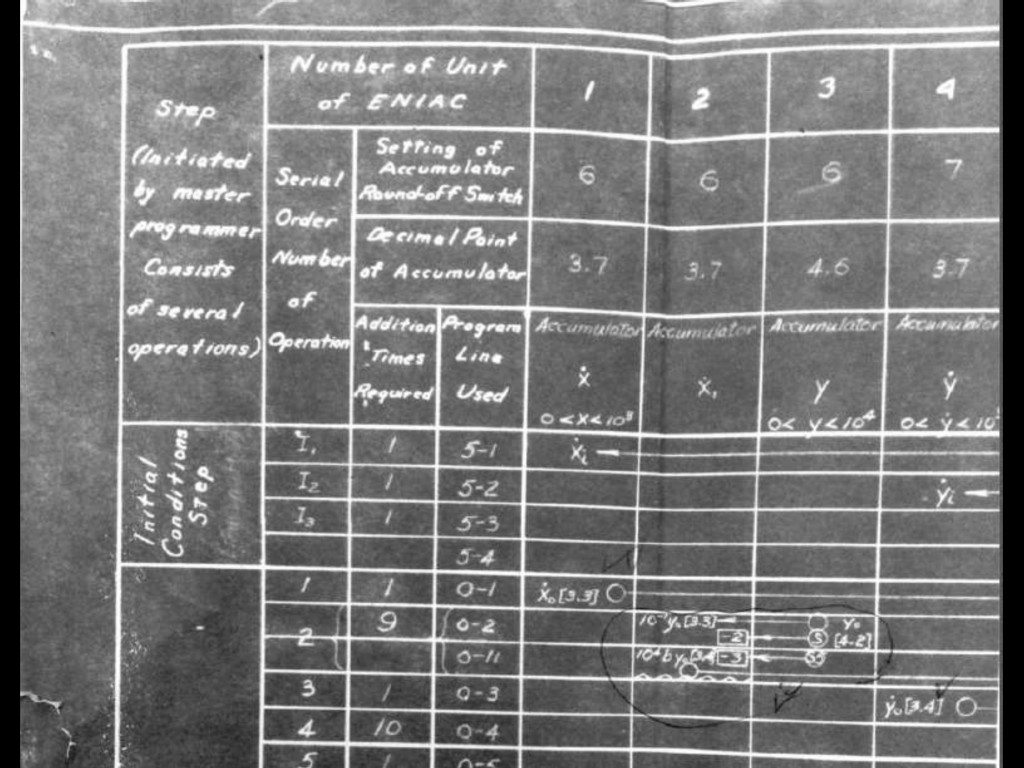 Number of Unit
of ENIAC
1
2
3
4
Step
(Initiated
by master
programmer
Consists
of several
operations)
Serial
Order
Number
of
Operation
Setting of
Accumulator
Round-off Switch
6
6
6
7
Decimal Point
of Accumulator
3.7
3.7
4.6
3.7
Addition
Times
Required
Program
Line
Used
Accumulator
ẋ
0<x<10³
Accumulator
ẋ₁
Accumulator
y
0< y<10⁴
Accumulator
ẏ
0< ẏ <10
Initial
Conditions
Step
I₁ 1 5-1 ẋᵢ
I₂ 1 5-2 ẏᵢ
I₃ 1 5-3
5-4
1 1 0-1 ẋ₀[3.3]
2 9 0-2 y₀[3.3] y₀
-2 S [4-2]
0-11 by₀[3.4] -3
3 1 0-3 ẏ₀[3.4]
4 10 0-4
5 1 0-5